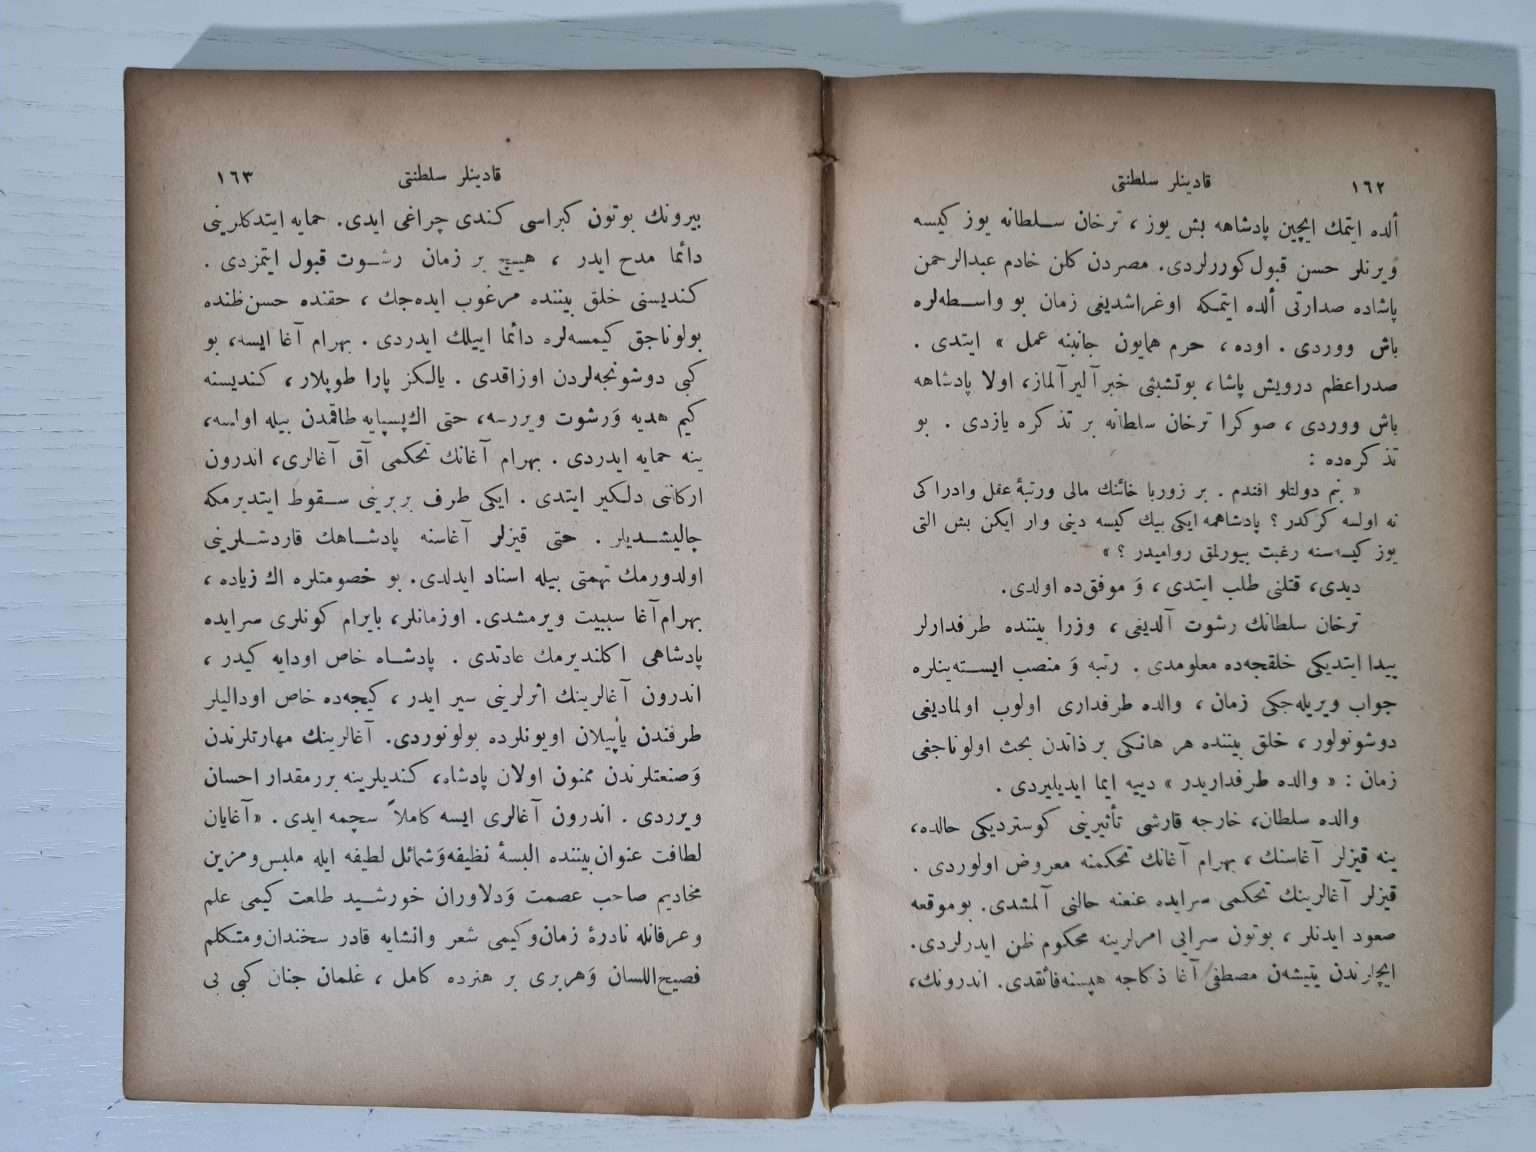 ١٦٢
قادينلر سلطنتى
ألده ايتمك ايچين پادشاهه بش يوز ، ترخان سلطانه يوز كيسه
ويرنلر حسن قبول كوررلردى. مصردن كلن خادم عبدالرحمن
پاشاده صدارتى ألده ايتمكه اوغراشديغى زمان بو واسطه‌لره
باش ووردى . اوده ، حرم همايون جانبنه عمل » ايتدى .
صدراعظم درويش پاشا، بوتشبثى خبر آلير آلماز، اولا پادشاهه
باش ووردى ، صوكرا ترخان سلطانه بر تذكره يازدى . بو
تذكره‌ده :
« بنم دولتلو افندم . بر زوربا خائنك مالى ورتبۀ عقل وادراكى
نه اولسه كركدر ؟ پادشاهمه ايكى بيك كيسه دينى وار ايكن بش التى
يوز كيسه‌سنه رغبت بيورلمق رواميدر ؟ »
ديدى، قتلنى طلب ايتدى ، وَ موفق‌ده اولدى.
ترخان سلطانك رشوت آلديغى ، وزرا بيننده طرفدارلر
پيدا ايتديكى خلقجه‌ده معلومدى . رتبه وَ منصب ايسته‌ينلره
جواب ويريله‌جكى زمان ، والده طرفدارى اولوب اولماديغى
دوشونولور ، خلق بيننده هر هانكى بر ذاتدن بحث اولوناجغى
زمان : « والده طرفداريدر » دييه ايما ايديليردى .
والده سلطان، خارجه قارشى تأثيرينى كوسترديكى حالده،
ينه قيزلر آغاسنك ، بهرام آغانك تحكمنه معروض اولوردى .
قيزلر آغالرينك تحكمى سرايده عنعنه حالنى آلمشدى. بوموقعه
صعود ايدنلر ، بوتون سرايى امرلرينه محكوم ظن ايدرلردى.
ايچلرندن يتيشه‌ن مصطفى آغا ذكاجه هپسنه‌فائقدى. اندرونك،
قادينلر سلطنتى
١٦٣
بيرونك بوتون كبراسى كندى چراغى ايدى. حمايه ايتدكلرينى
دائما مدح ايدر ، هيچ بر زمان رشوت قبول ايتمزدى .
كنديسنى خلق بيننده مرغوب ايده‌جك ، حقنده حسن‌ظنده
بولوناجق كيمسه‌لره دائما اييلك ايدردى . بهرام آغا ايسه، بو
كبى دوشونجه‌لردن اوزاقدى . يالكز پارا طوپلار، كنديسنه
كيم هديه وَرشوت ويررسه، حتى اك‌پسپايه طاقمدن بيله اولسه،
ينه حمايه ايدردى . بهرام آغانك تحكمى آق آغالرى، اندرون
اركاننى دلكير ايتدى . ايكى طرف بربرينى سقوط ايتديرمكه
چاليشديلر . حتى قيزلر آغاسنه پادشاهك قاردشلرينى
اولدورمك تهمتى بيله اسناد ايدلدى. بو خصومتلره اك زياده ،
بهرام‌آغا سببيت ويرمشدى. اوزمانلر، بايرام كونلرى سرايده
پادشاهى اكلنديرمك عادتدى . پادشاه خاص اودايه كيدر ،
اندرون آغالرينك اثرلرينى سير ايدر ، كيجه‌ده خاص اوداليلر
طرفندن ياپيلان اويونلرده بولونوردى. آغالرينك مهارتلرندن
وَصنعتلرندن ممنون اولان پادشاه، كنديلرينه بررمقدار احسان
ويرردى . اندرون آغالرى ايسه كاملاً سچمه ايدى . «آغايان
لطافت عنوان‌بيننده البسۀ نظيفه‌وَشمائل لطيفه ايله ملبس‌ومزين
مخاديم صاحب عصمت وَدلاوران خورشيد طلعت كيمى علم
وعرفانله نادرۀ زمان‌وكيمى شعر وانشايه قادر سخندان‌ومتكلم
فصيح‌اللسان وَهربرى بر هنرده كامل ، غلمان جنان كبى بى